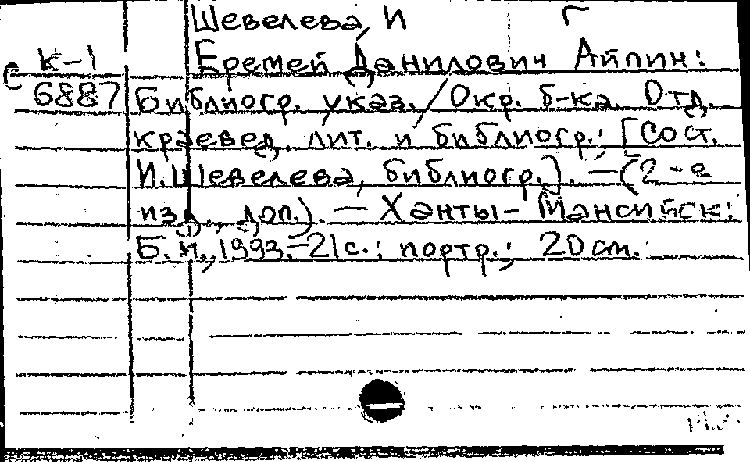 Шевелева, И Г
с К-1 Еремей Данилович Айпин:
6887 Библиогр. указ. / Окр. б-ка. Отд.
краевед. лит. и библиогр.; [Сост.
И. Шевелева, библиогр.]. — (2-е
изд., доп.). — Ханты-Мансийск:
Б.и., 1993.-21с.: портр.; 20 см.